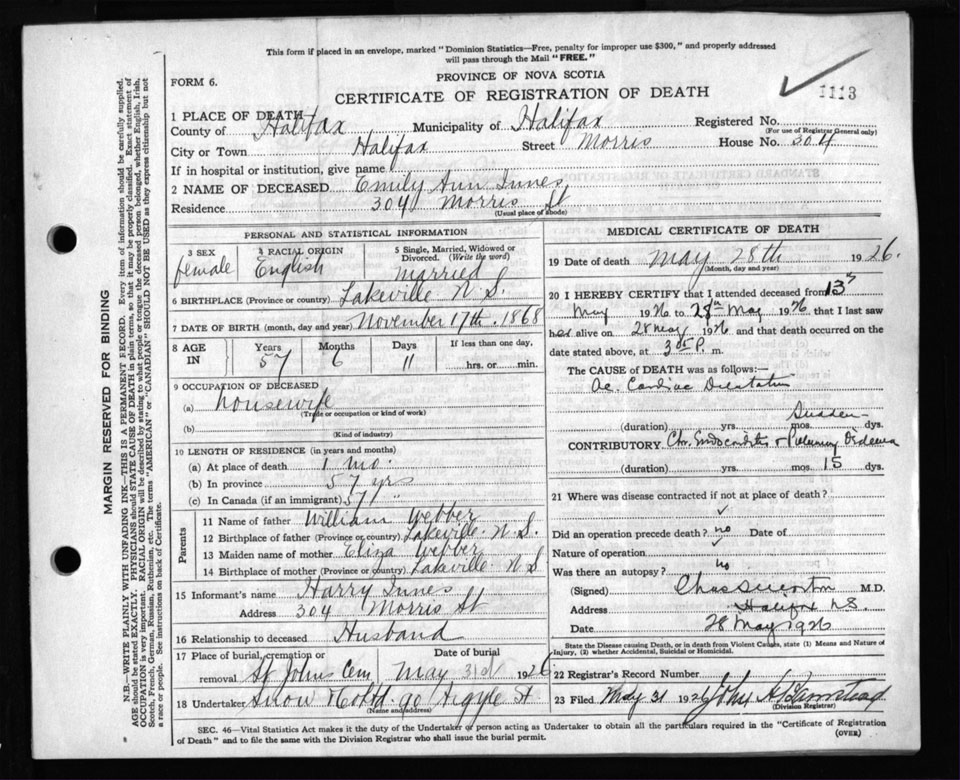 This form if placed in an envelope, marked "Dominion Statistics—Free, penalty for improper use $300," and properly addressed
will pass through the Mail "FREE."
FORM 6.
PROVINCE OF NOVA SCOTIA
CERTIFICATE OF REGISTRATION OF DEATH
1113
1 PLACE OF DEATH
County of Halifax Municipality of Halifax Registered No.
(For use of Registrar General only)
City or Town Halifax Street Morris House No. 304
If in hospital or institution, give name
2 NAME OF DECEASED Emily Ann Innes
Residence 304 Morris St
(Usual place of abode)
PERSONAL AND STATISTICAL INFORMATION
3 SEX female
4 RACIAL ORIGIN English
5 Single, Married, Widowed or Divorced. (Write the word) married
6 BIRTHPLACE (Province or country) Lakeville N.S.
7 DATE OF BIRTH (month, day and year) November 17th. 1868
8 AGE IN Years Months Days If less than one day.
57 6 11 ....hrs. or .... min.
9 OCCUPATION OF DECEASED
(a) housewife
(Trade or occupation or kind of work)
(b)
(Kind of industry)
10 LENGTH OF RESIDENCE (in years and months)
(a) At place of death 1 mo.
(b) In province 57 yrs
(c) In Canada (if an immigrant) 57 "
Parents
11 Name of father William Webber
12 Birthplace of father (Province or country) Lakeville. N.S.
13 Maiden name of mother Eliza Webber
14 Birthplace of mother (Province or country) Lakeville N S
15 Informant's name Harry Innes
Address 304 Morris St
16 Relationship to deceased Husband
17 Place of burial, cremation or removal Date of burial
St Johns Cem May 31st 1926
18 Undertaker Snow & Co Ltd 90 Argyle St
(Name and address)
MEDICAL CERTIFICATE OF DEATH
19 Date of death May 28th 1926.
(Month, day and year)
20 I HEREBY CERTIFY that I attended deceased from 13
May 1926 to 28th May 1926 that I last saw
her alive on 28 May 1926 and that death occurred on the
date stated above, at 3 P. m.
The CAUSE of DEATH was as follows:—
Ac. Cardiac Dilatation
Sudden
(duration) yrs. mos. dys.
CONTRIBUTORY Chr. Endocarditis & Pulmonary Oedema
(duration) yrs. mos. 15 dys.
21 Where was disease contracted if not at place of death?
Did an operation precede death? no Date of
Nature of operation
Was there an autopsy? no
(Signed) M.D.
Address Halifax N.S.
Date 28 May 1926
State the Disease causing Death, or in death from Violent Causes, state (1) Means and Nature of
Injury, (2) whether Accidental, Suicidal or Homicidal.
22 Registrar's Record Number
23 Filed May 31 1926 John
(Division Registrar)
SEC. 46—Vital Statistics Act makes it the duty of the Undertaker or person acting as Undertaker to obtain all the particulars required in the "Certificate of Registration
of Death" and to file the same with the Division Registrar who shall issue the burial permit.
(OVER)
MARGIN RESERVED FOR BINDING
N.B.—WRITE PLAINLY WITH UNFADING INK—THIS IS A PERMANENT RECORD. Every item of information should be carefully supplied.
AGE should be stated EXACTLY. PHYSICIANS should STATE CAUSE OF DEATH in plain terms, so that it may be properly classified. Exact statement of
OCCUPATION is very important. RACIAL ORIGIN will be described by stating to what people or tongue the deceased person belonged, whether English, Irish,
Scotch, French, German, Russian, Ruthenian, etc. The terms "AMERICAN" or "CANADIAN" SHOULD NOT BE USED as they express citizenship but not
a race or people. See instructions on back of Certificate.